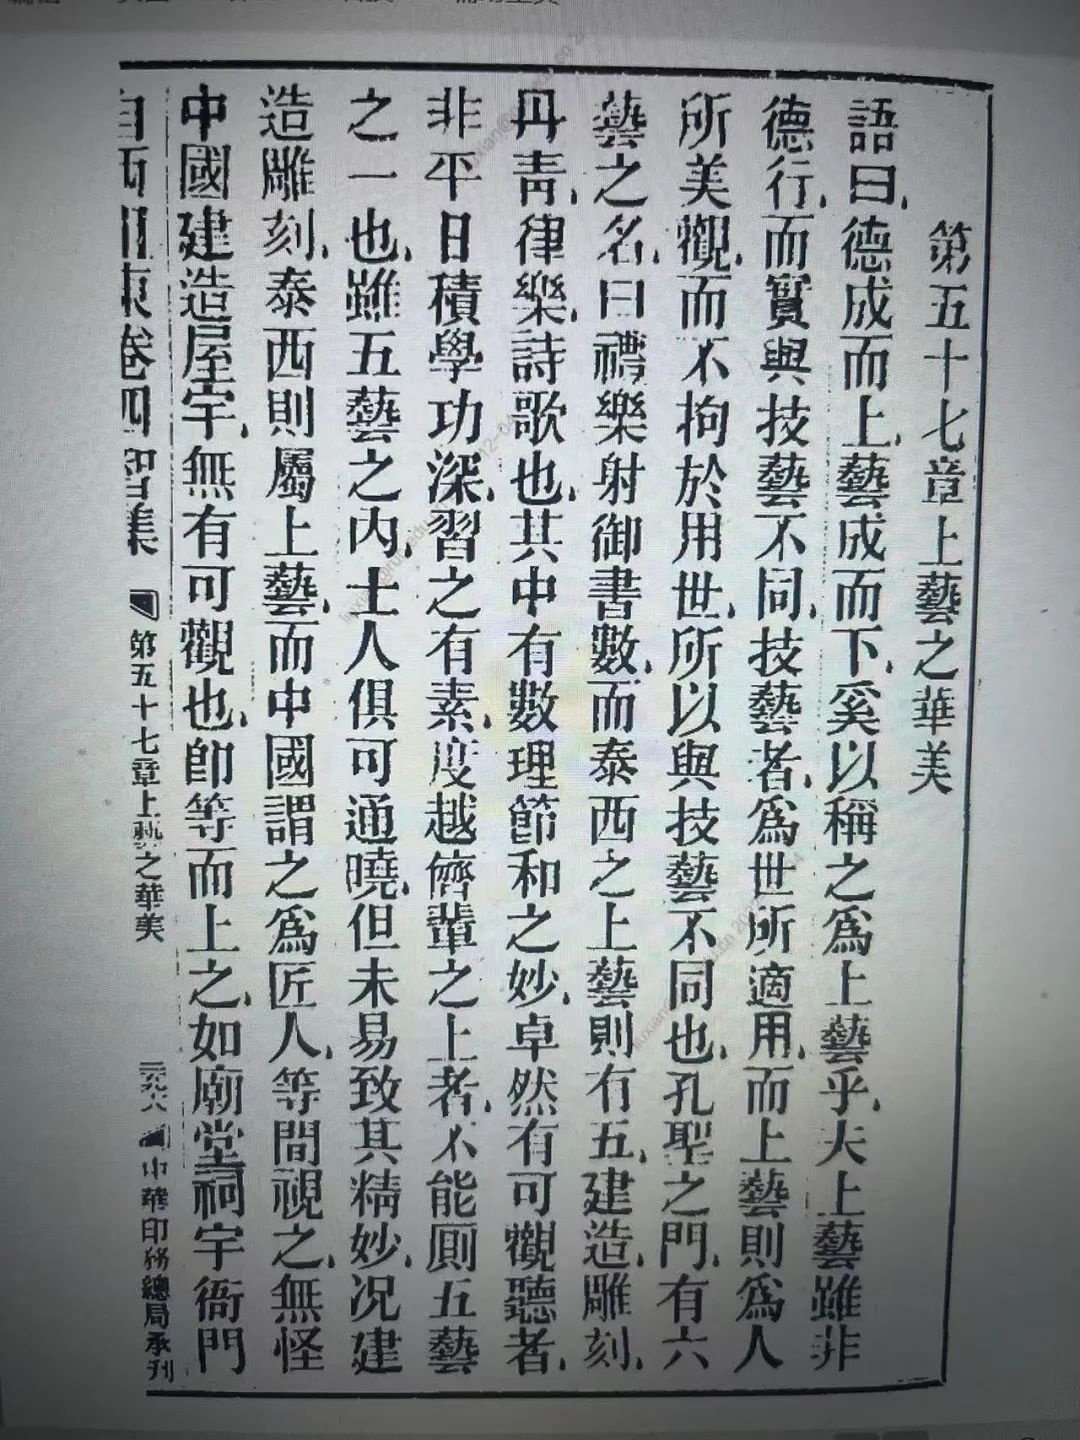 第五十七章上藝之華美
語曰、德成而上、藝成而下、奚以稱之爲上藝乎、夫上藝雖非
德行、而實與技藝不同、技藝者、爲世所適用、而上藝則爲人
所美觀、而不拘於用世、所以與技藝不同也、孔聖之門、有六
藝之名、曰禮樂射御書數、而泰西之上藝則有五、建造、雕刻、
丹青、律樂、詩歌也、其中有數理節和之妙、卓然有可觀聽者、
非平日積學功深、習之有素、度越儕輩之上者、不能厠五藝
之一也、雖五藝之內、士人俱可通曉、但未易致其精妙、况建
造雕刻、泰西則屬上藝、而中國謂之爲匠人、等閒視之、無怪
中國建造屋宇、無有可觀也、卽等而上之、如廟堂祠宇衙門
自西徂東卷四智集 第五十七章上藝之華美 中華印務總局承刊